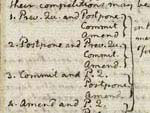 their completions may be
1. Prev. Qu. and Postpone
Commit
Amend
2. Postpone and Prev. Qu.
Commit
Amend
3. Commit and P. 2.
Postpone
Amend
4. Amend and P. 2.